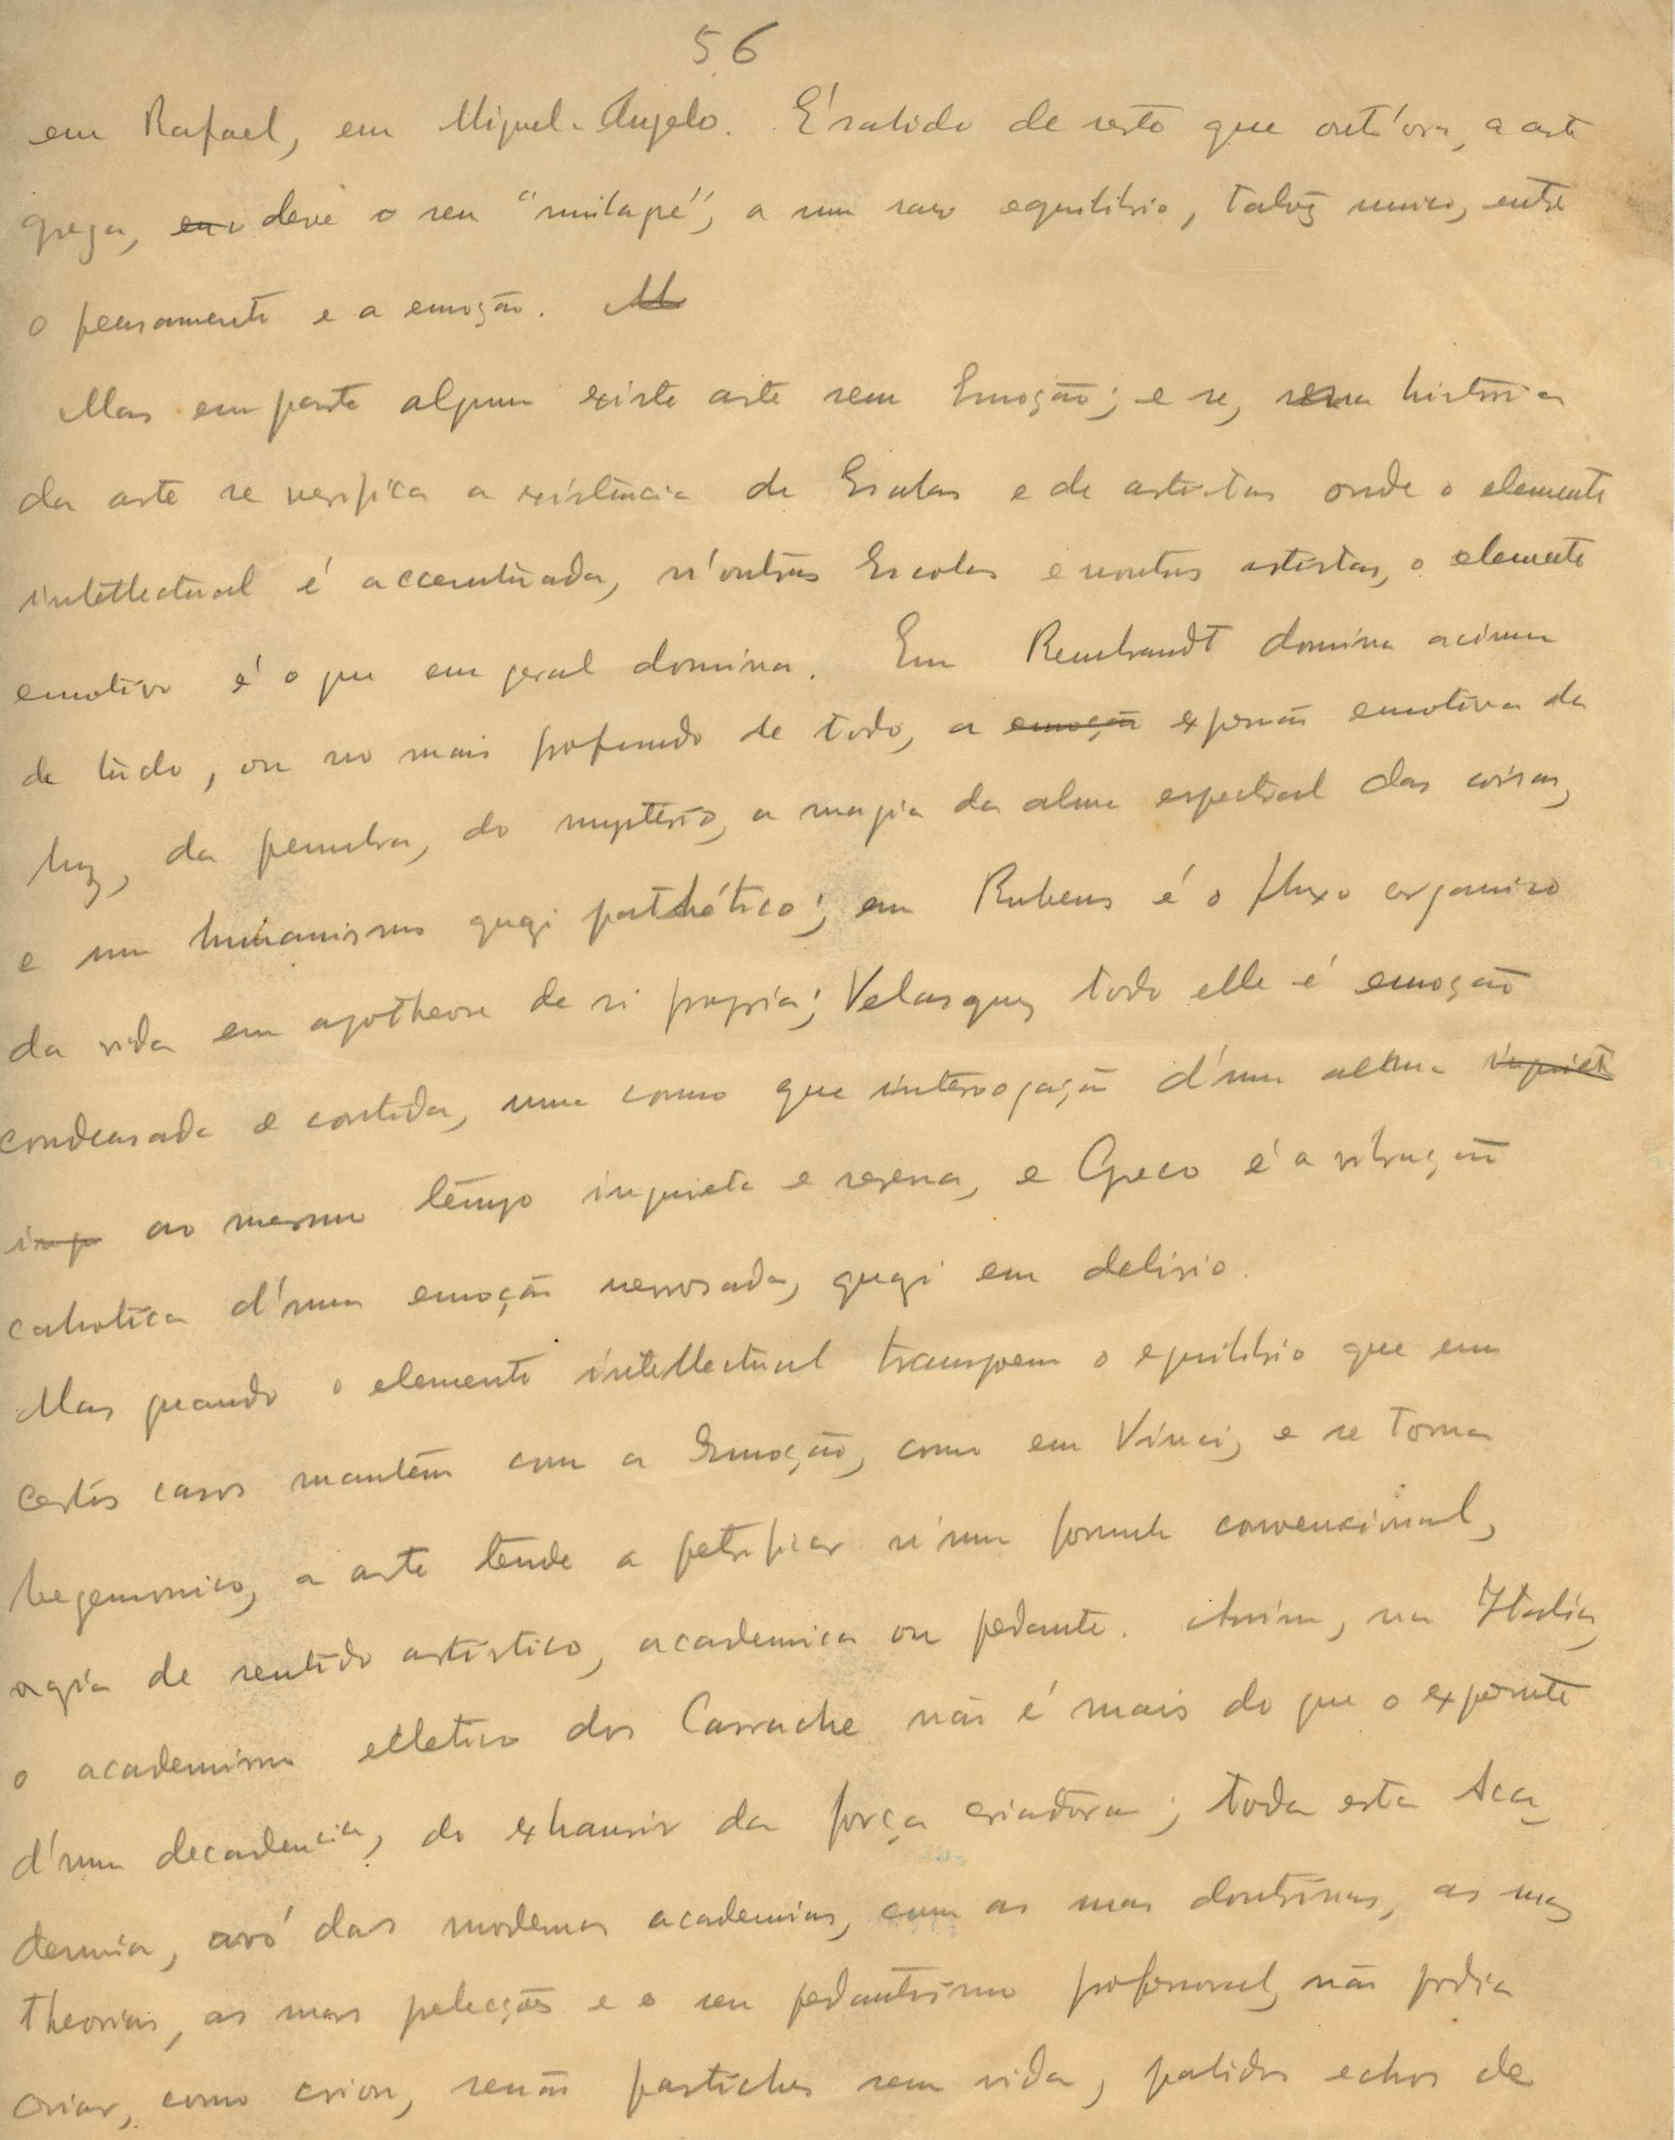 56
em Rafael, em Miguel-Angelo. É sabido de resto que outr'ora, a arte
grega, deve o seu a um raro equilibrio, talvez unico, entre
o pensamento e a emoção. M
Mas em parte alguma existe arte sem Emoção; e se, na historia
da arte se verifica a existencia de Escolas e de artistas onde o elemento
intellectual é accentuada, n'outras Escolas e noutros artistas, o elemento
emotivo é o que em geral domina. Em Rembrandt domina acima
de tudo, ou no mais profundo de todo, a emoção expressão emotiva da
luz, da penumbra, do mysterio, a magia da alma espectral das coisas,
e um humanismo quazi pathético; em Rubens é o fluxo organico
da vida em apotheose de si propria; Velasquez todo elle é emoção
condensada e contida, uma como que interrogação d'uma alma inquiet
inq ao mesmo tempo inquieta e serena, e Greco é a vibração
catholica d'uma emoção nevrosada, quazi em delirio.
Mas quando o elemento intellectual transpoem o equilibrio que em
certos casos mantêm com a Emoção, como em Vinci, e se torna
hegemonico, a arte tende a petrificar n'uma formula convencional,
vazia de sentido artistico, academica ou pedante. Assim, na Italia,
o academismo ecletico dos Carrache não é mais do que o expoente
d'uma decadencia, do exhaurir da força criadora; toda esta Aca_
demia, avó das modernas academias, com as suas doutrinas, as suas
theorias, as suas preleções e o seu pedantismo professoral, não podia
criar, como criou, senão pastiches sem vida, palidos echos de